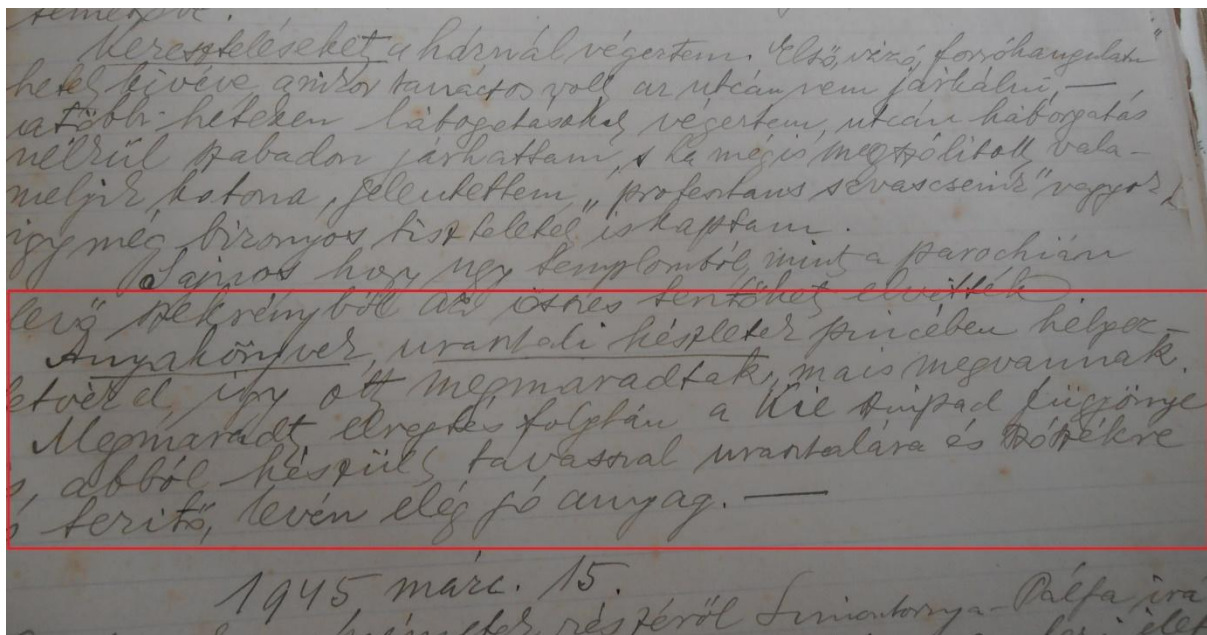 temetve.
Kereszteléseket a háznál végeztem. Első, vizió, forróhangulatu
hetet kivéve amikor tanácsos volt az utcán nem járkálni, —
a többi heteken látogatásokat végeztem, utcán háborgatás
nélkül szabadon járhattam, s ha mégis megszólitott vala-
melyik katona, jelentettem, „protestans sevascsenik" vagyok,
igy még bizonyos tiszteletet is kaptam.
Sajnos hogy ugy templomból, mint a parochián
levő szekrényből az összes teritőket elvitték.
Anyakönyvek, urasztali készletek pincében helyez-
etvén el, igy ott megmaradtak, ma is megvannak.
Megmaradt elrejtés folytán a Kie szinpad függönye
s, abból készült tavasszal urasztalára és szószékre
teritő, lévén elég jó anyag. —
1945 márc. 15.
németek részéről Simontornya - Pálfa irá